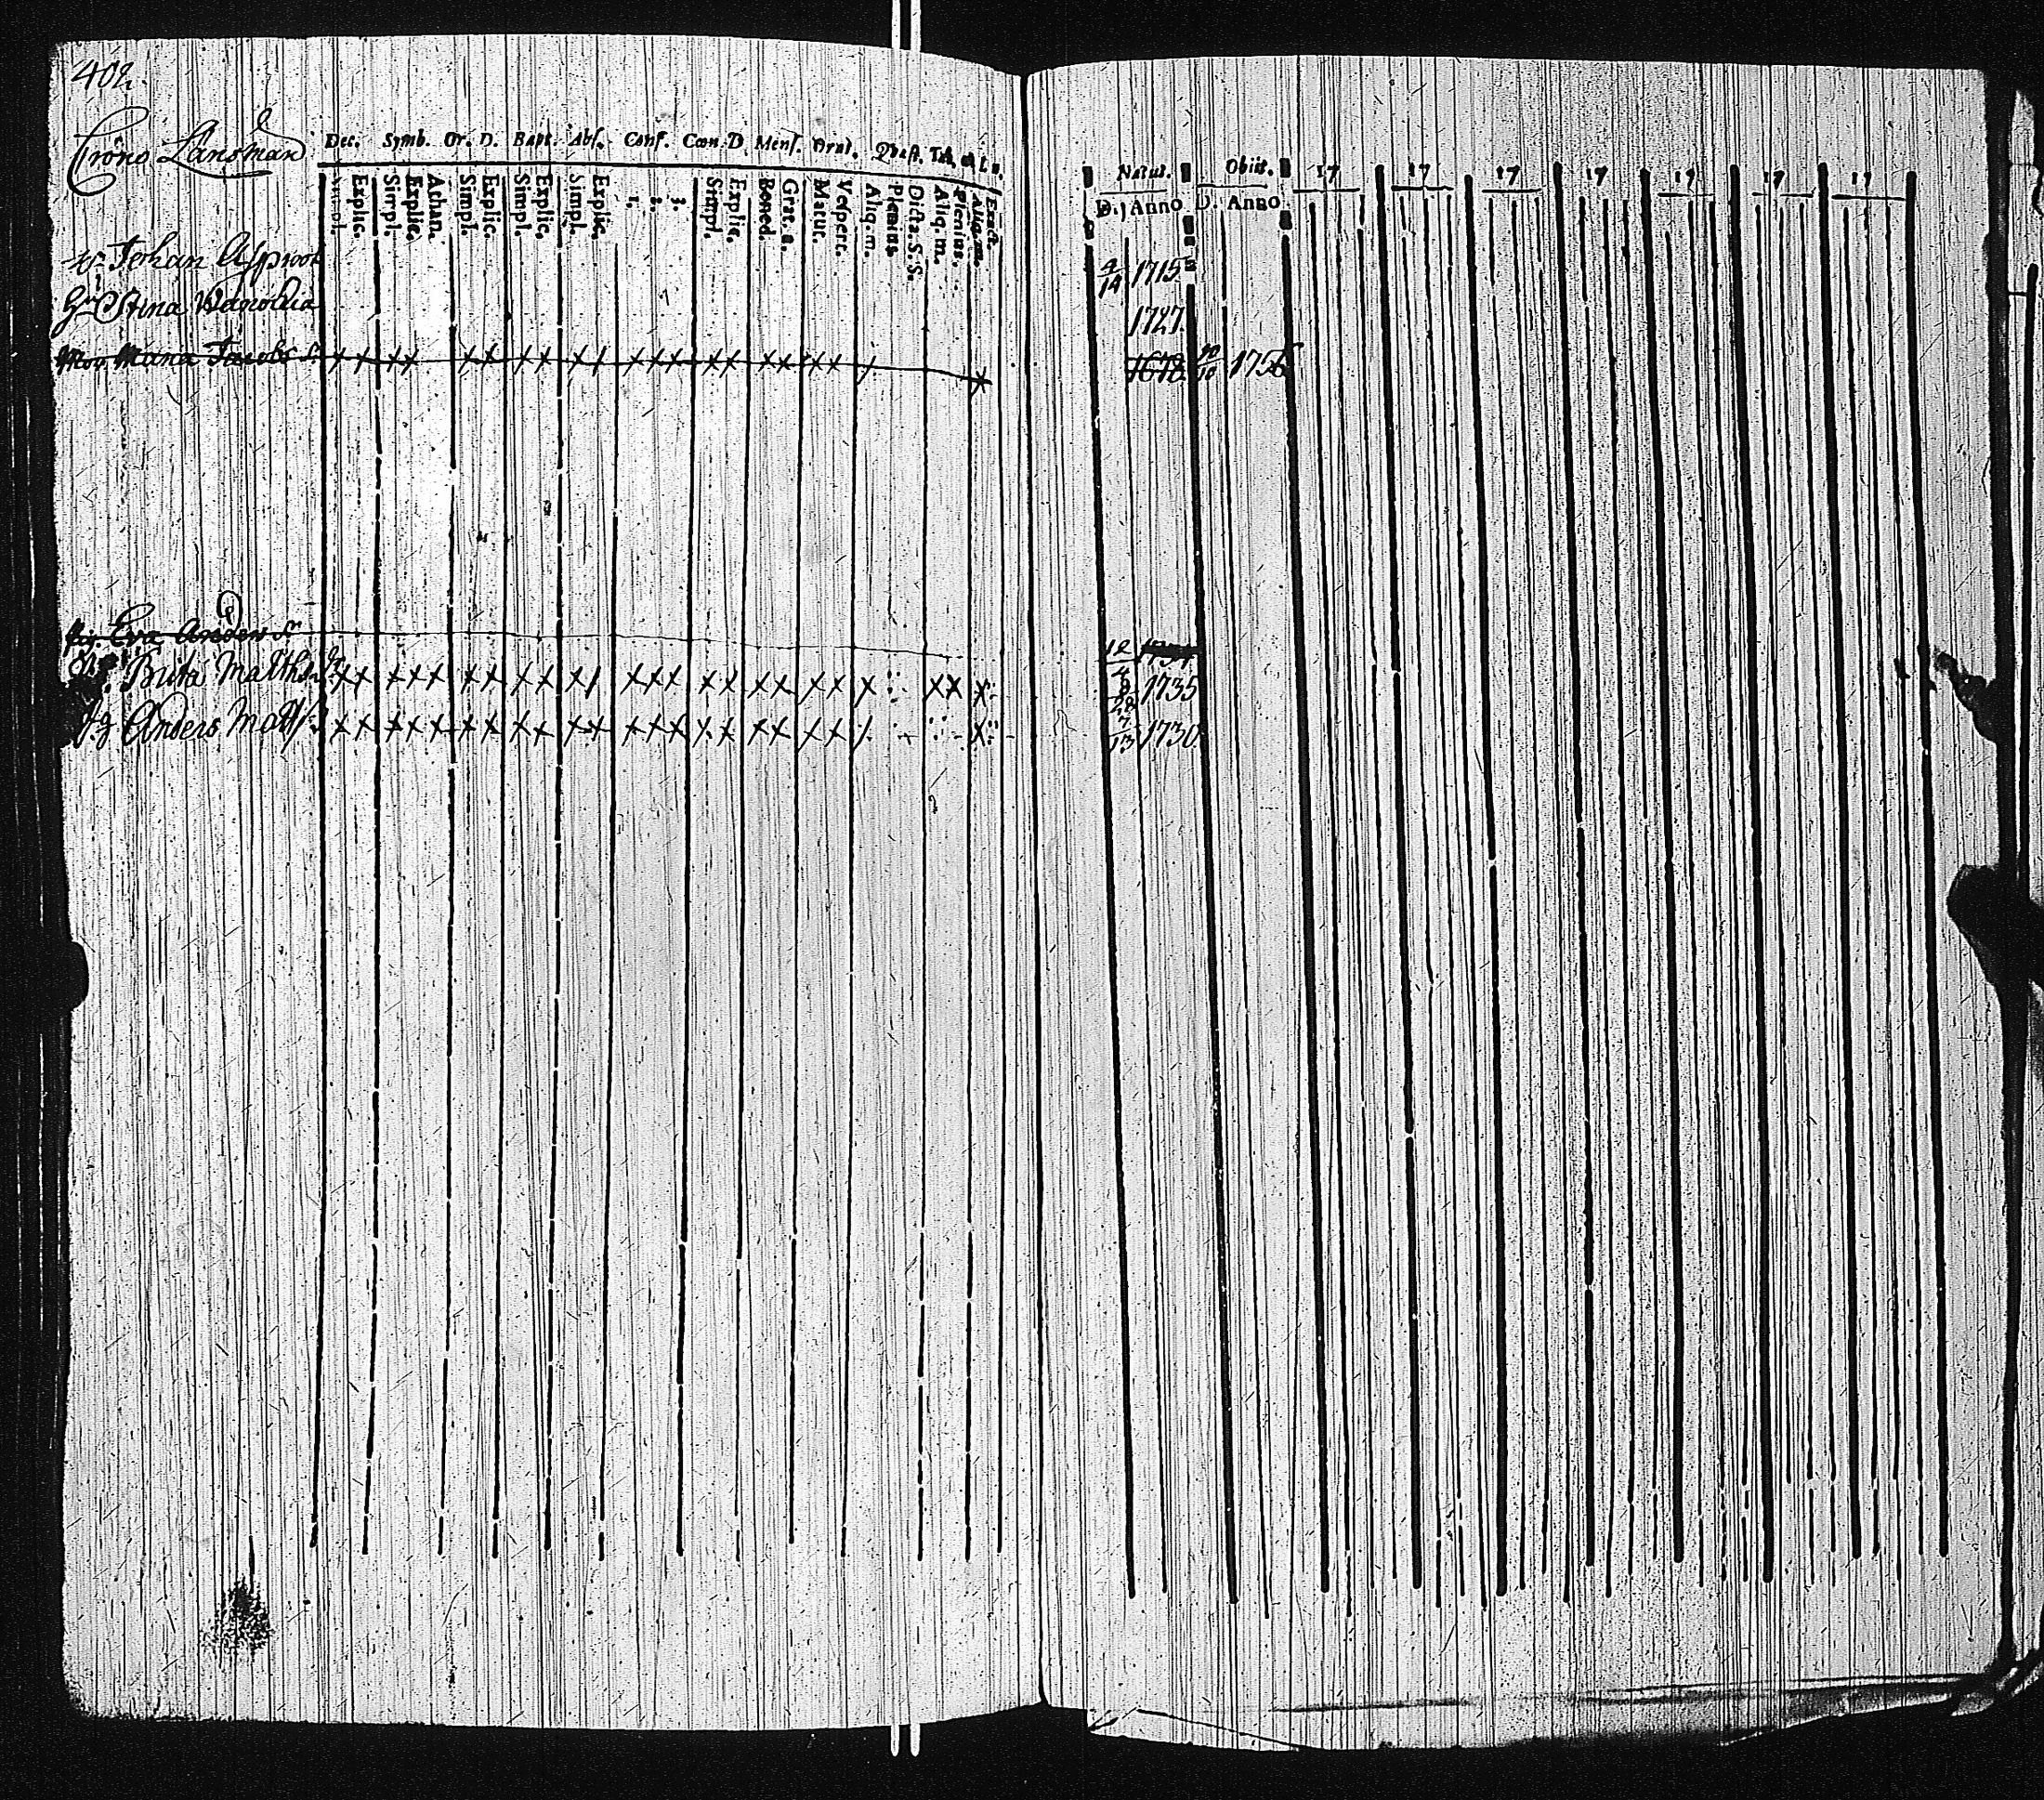 402.
Crono Länsman
Dec. Symb. Or. D. Bapt. Abs. Conf. Cœn. D. Mens. Orat. Quæst. Tab.
Explic. Simpl. Explic. Athan. Simpl. Explic. Simpl. Explic. Simpl. Explic. 1. 2. 3. Simpl. Explic. Bened. Grat. a. Matut. Vespert. Aliq. m. Plenius. Dicta. S. S. Aliq. m. Plenius. Aliq. m. Exact.
Natus. Obiit. 17 17 17 17 17 17 17
D. Anno D. Anno
Johan 4/14 1715
Stina 1727.
Mor Maria Jacobs dr 1678 10/10 1756
Pig. Eva Anders dr 12
Brita Matths dr 1735
dg Anders Matts 7/13 1730